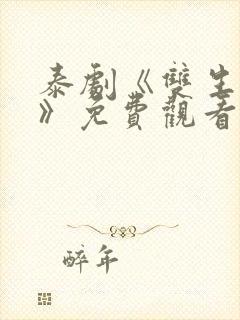 泰劇《雙生
》免費觀看
醉年